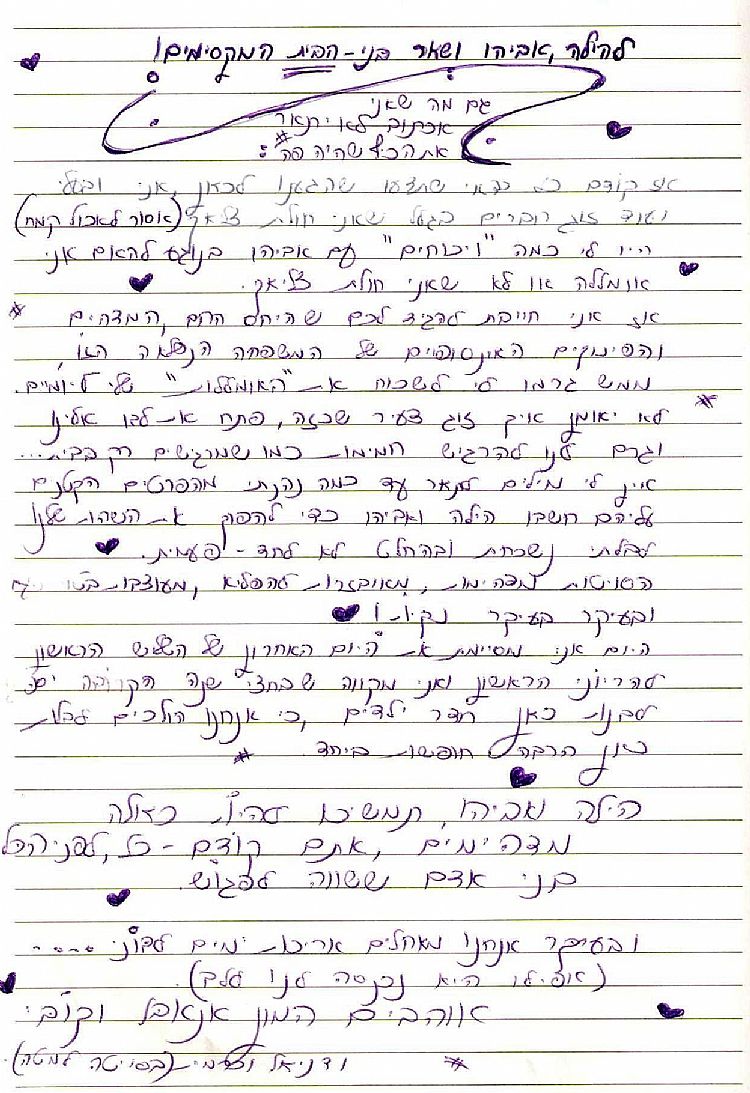 להילה, אביהו ושאר בני-הבית המקסימים!
גם מה שאני
אכתוב לא יתאר
את הכיף שהיה פה:
אז קודם כל כדאי שתדעו שהגענו לכאן, אני ובעלי
ועוד זוג חברים בגלל שאני חולת צליאק (אסור לאכול קמח)
היו לי כמה "ויכוחים" עם אביהו בנוגע להאם אני
אומללה או לא שאני חולת צליאק.
אז אני חייבת להגיד לכם שהיחס החם, המדהים
והפינוקים האינסופיים של המשפחה הנפלאה הזו,
ממש גרמו לי לשכוח את "האומללות" שלי ליומיים.
לא יאומן איך זוג צעיר שכזה, פתח את לבו אלינו
וגרם לנו להרגיש חמימות כמו שמרגישים רק בבית...
אין לי מילים לתאר עד כמה נהנתי מהפרטים הקטנים
עליהם חשבו הילה ואביהו כדי להפוך את השהות שלנו
לבלתי נשכחת ובהחלט לא לחד-פעמית.
הסוויטות מדהימות, מאובזרות להפליא, מעוצבות
ובעיקר בעיקר נקיות!
היום אני מסיימת את היום האחרון של השליש הראשון
להריוני הראשון ואני מקווה שבחצי שנה הקרובה
לבנות כאן חדר ילדים, כי אנחנו הולכים לבלות
כאן הרבה חופשות ביחד.
הילה ואביהו, תמשיכו להיות כאלה
מדהימים, אתם קודם-כל, לפני הכל
בני אדם ששווה לפגוש.
ובעיקר אנחנו מאחלים אריכות ימים לבוני....
(אפילו היא נכנסה לנו ללב).
אוהבים המון אנאבל וקובי
ודניאל (בסוויטה למטה).